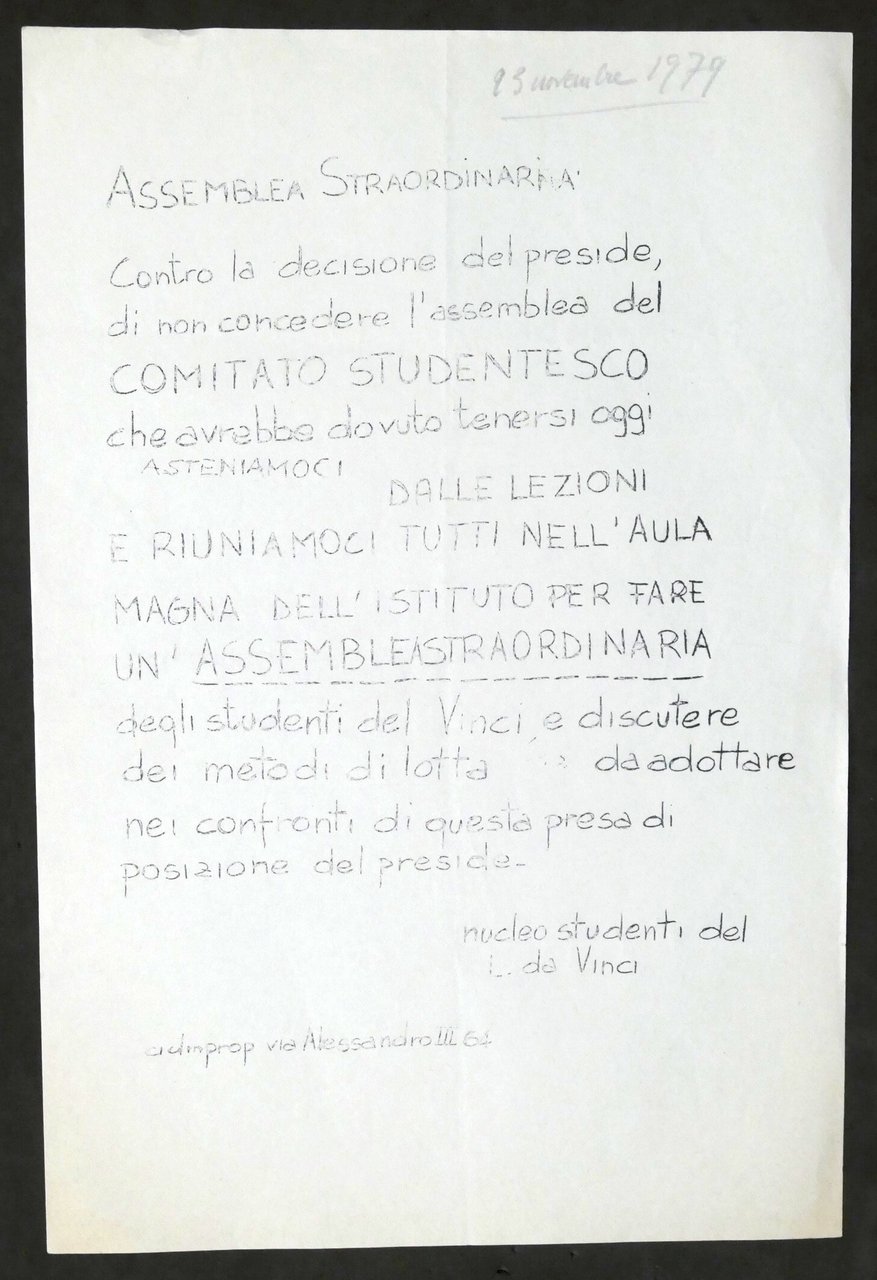 novembre 1979
ASSEMBLEA STRAORDINARIA
Contro la decisione del preside,
di non concedere l'assemblea del
COMITATO STUDENTESCO
che avrebbe dovuto tenersi oggi
ASTENIAMOCI
DALLE LEZIONI
E RIUNIAMOCI TUTTI NELL'AULA
MAGNA DELL'ISTITUTO PER FARE
UN'ASSEMBLEA STRAORDINARIA
degli studenti del Vinci, e discutere
dei metodi di lotta da adottare
nei confronti di questa presa di
posizione del preside-
nucleo studenti del
L. da Vinci
via Alessandro III 64